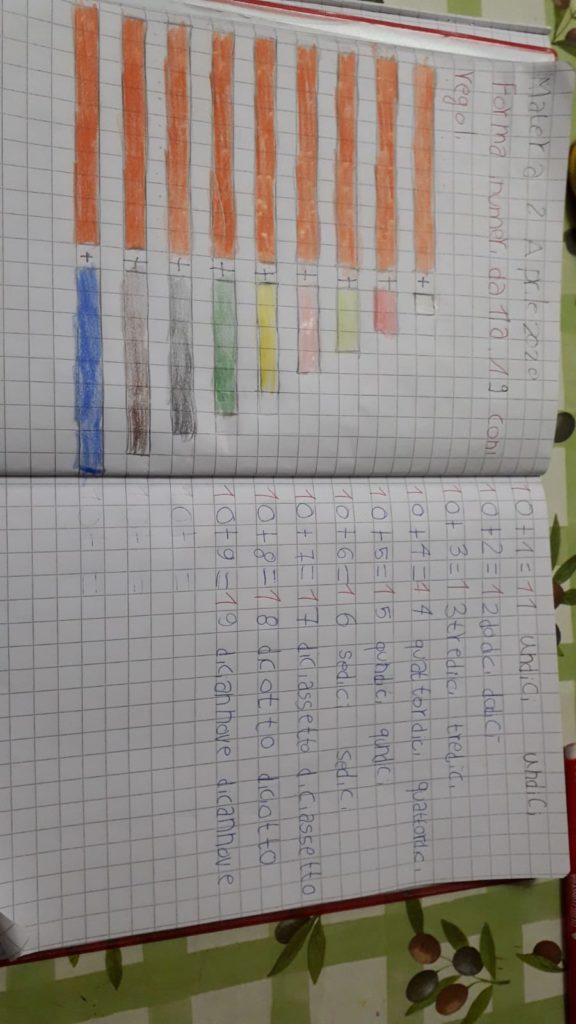 Matera 2 Aprile 2020
Forma numeri da 1 a 19 con i
regoli
+
+
+
+
+
+
+
+
+
10+1=11 undici undici
10+2=12 dodici dodici
10+3=13 tredici tredici
10+4=14 quattordici quattordici
10+5=15 quindici quindici
10+6=16 sedici sedici
10+7=17 diciassetto diciassetto
10+8=18 diciotto diciotto
10+9=19 dicannove dicannove